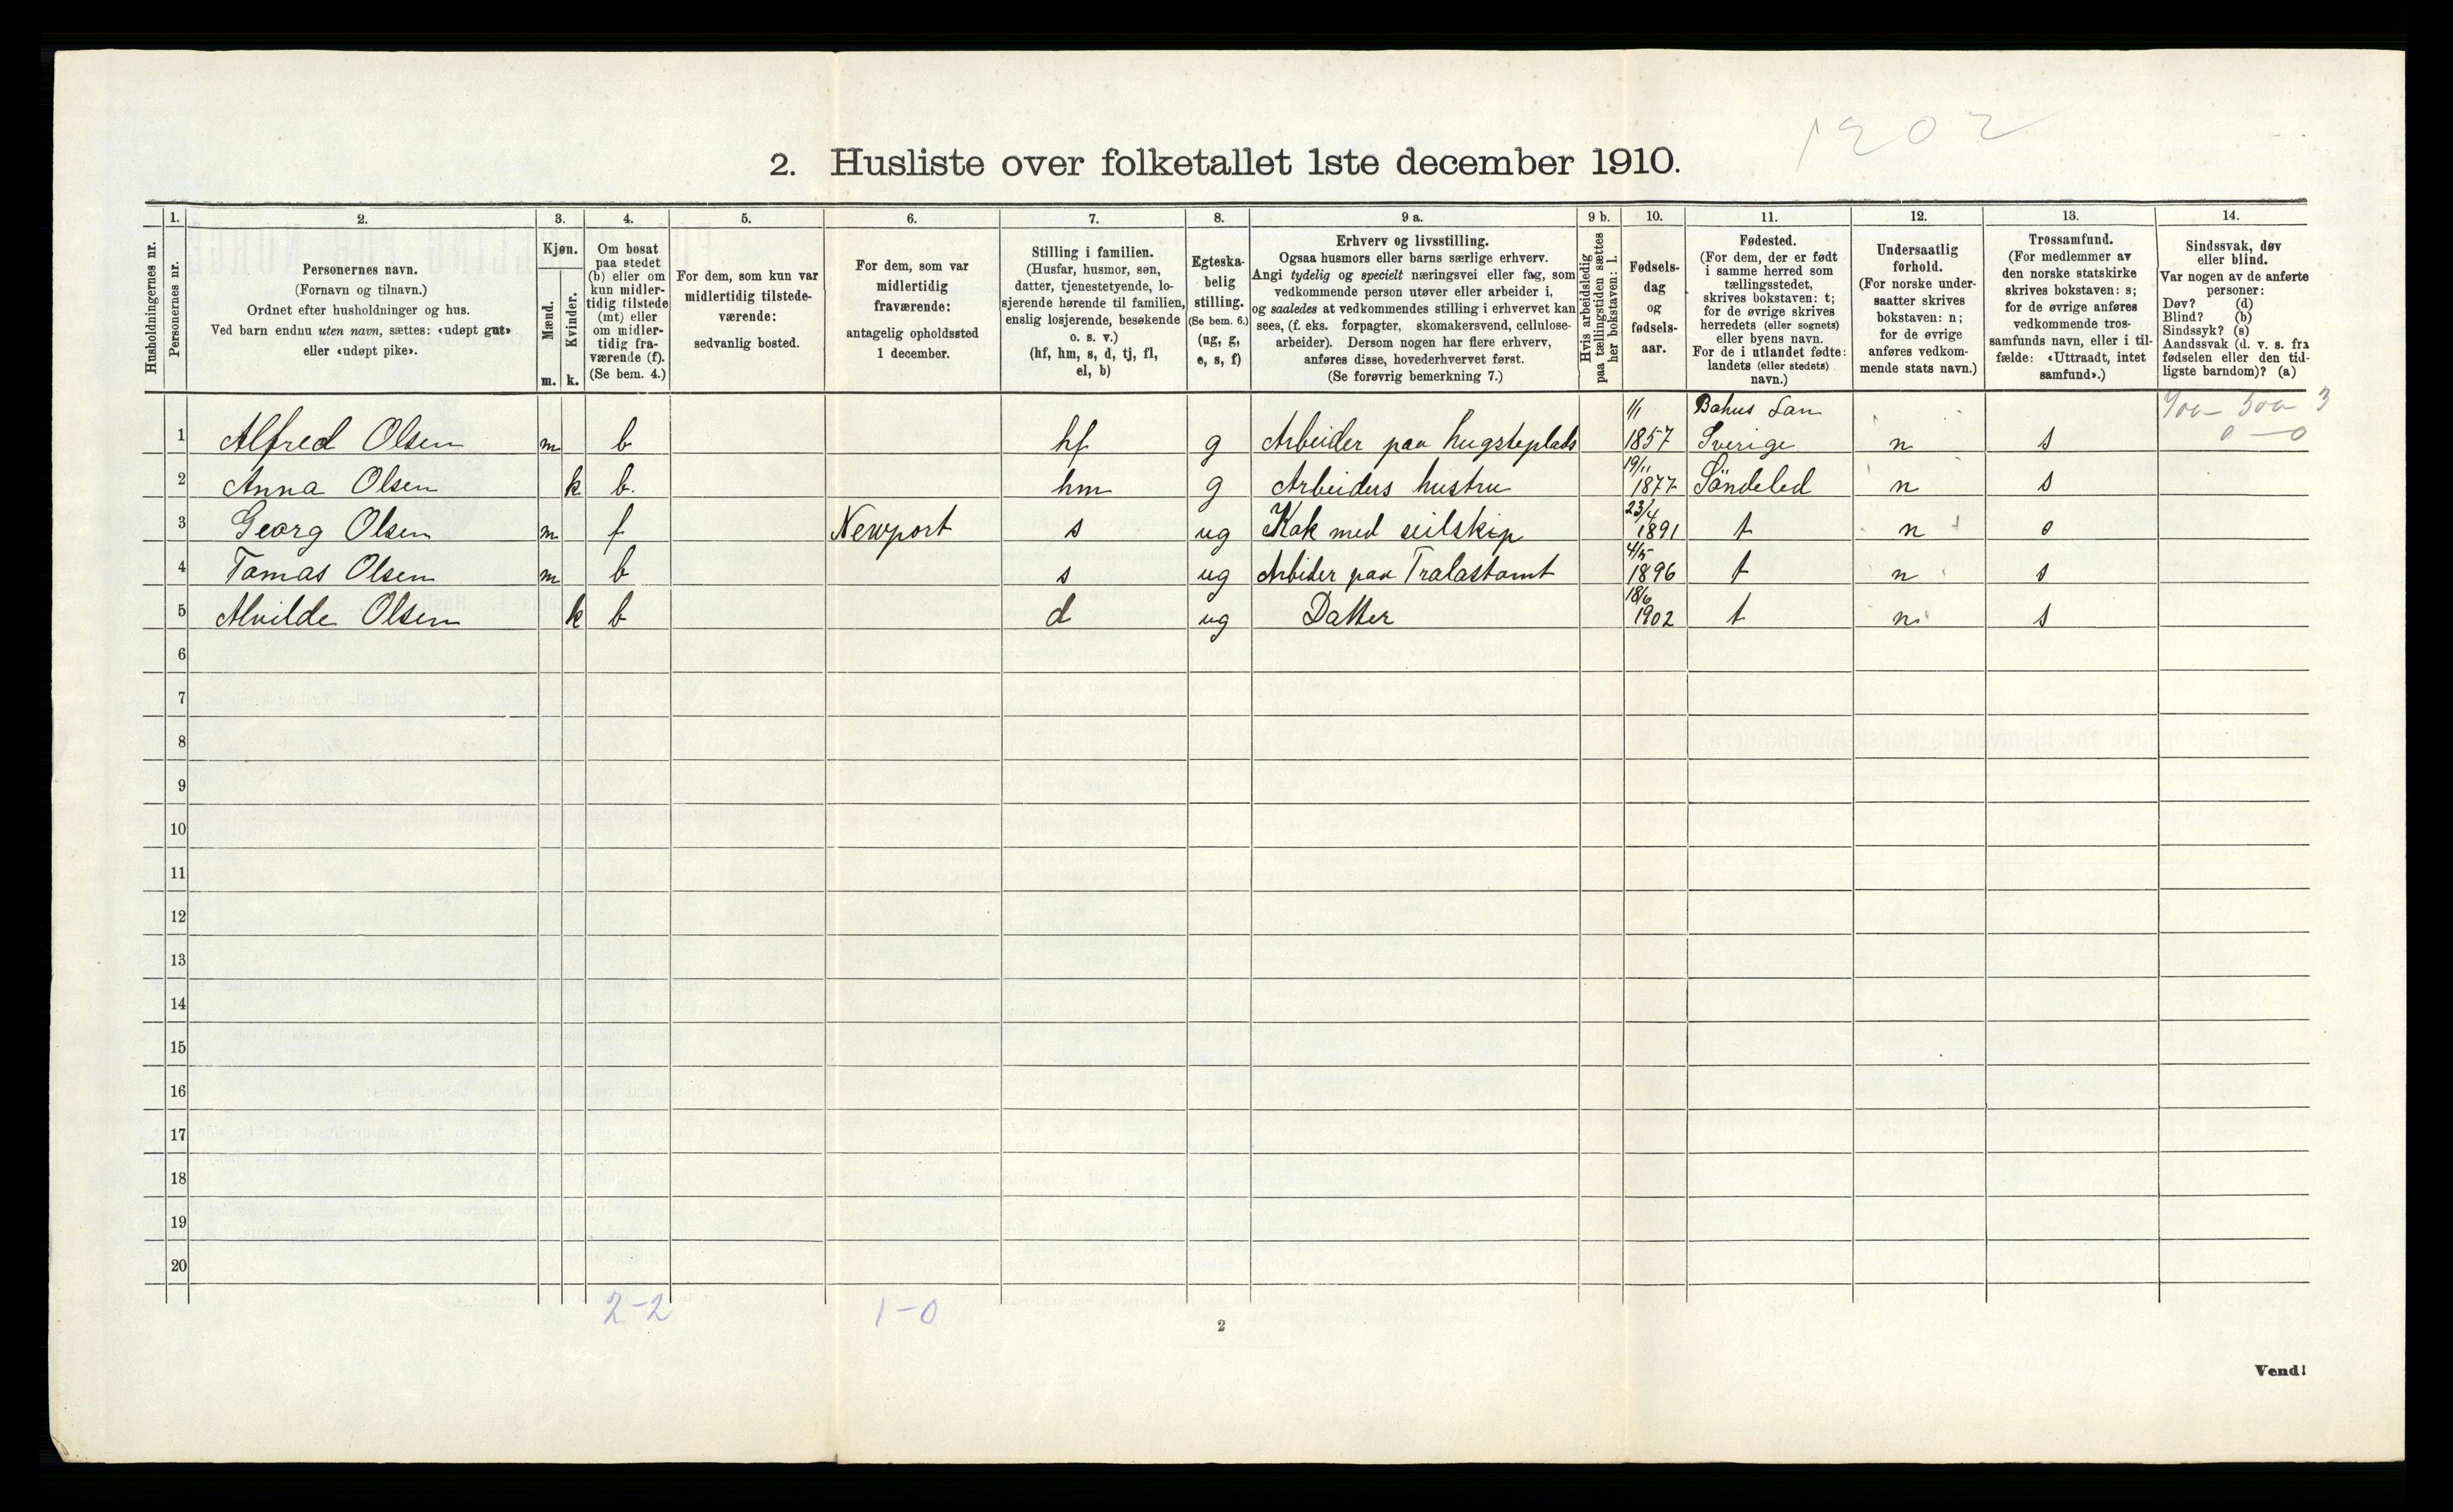 1202
2. Husliste over folketallet 1ste december 1910.
Husholdningernes nr.
1.
Personernes nr.
2.
Personernes navn.
(Fornavn og tilnavn.)
Ordnet efter husholdninger og hus.
Ved barn endnu uten navn, sættes: «udøpt gut»
eller «udøpt pike».
3.
Kjøn.
Mænd.
Kvinder.
m. k.
4.
Om bosat
paa stedet
(b) eller om
kun midler-
tidig tilstede
(mt) eller
om midler-
tidig fra-
værende (f).
(Se bem. 4.)
5.
For dem, som kun var
midlertidig tilstede-
værende:
sedvanlig bosted.
6.
For dem, som var
midlertidig
fraværende:
antagelig opholdssted
1 december.
7.
Stilling i familien.
(Husfar, husmor, søn,
datter, tjenestetyende, lo-
sjerende hørende til familien,
enslig losjerende, besøkende
o. s. v.)
(hf, hm, s, d, tj, fl,
el, b)
8.
Egteska-
belig
stilling.
(Se bem. 6.)
(ug, g,
e, s, f)
9 a.
Erhverv og livsstilling.
Ogsaa husmors eller barns særlige erhverv.
Angi tydelig og specielt næringsvei eller fag, som
vedkommende person utøver eller arbeider i,
og saaledes at vedkommendes stilling i erhvervet kan
sees, (f. eks. forpagter, skomakersvend, cellulose-
arbeider). Dersom nogen har flere erhverv,
anføres disse, hovederhvervet først.
(Se forøvrig bemerkning 7.)
9 b.
Hvis arbeidsledig
paa tællingstiden sættes
her bokstaven: l.
10.
Fødsels-
dag
og
fødsels-
aar.
11.
Fødested.
(For dem, der er født
i samme herred som
tællingsstedet,
skrives bokstaven: t;
for de øvrige skrives
herredets (eller sognets)
eller byens navn.
For de i utlandet fødte:
landets (eller stedets)
navn.)
12.
Undersaatlig
forhold.
(For norske under-
saatter skrives
bokstaven: n;
for de øvrige
anføres vedkom-
mende stats navn.)
13.
Trossamfund.
(For medlemmer av
den norske statskirke
skrives bokstaven: s;
for de øvrige anføres
vedkommende tros-
samfunds navn, eller i til-
fælde: «Uttraadt, intet
samfund».)
14.
Sindssvak, døv
eller blind.
Var nogen av de anførte
personer:
Døv? (d)
Blind? (b)
Sindssyk? (s)
Aandssvak (d. v. s. fra
fødselen eller den tid-
ligste barndom)? (a)
1/1 Bahus Lan
1 Alfred Olsen m b hf g Arbeider paa hugsteplads 1857 Sverige n s
0 — 0
19/11
2 Anna Olsen k b. hm g Arbeiders hustru 1877 Söndeled n s
23/4
3 Georg Olsen m f Newport s ug Kok med seilskip 1891 t n
4/5
4 Tomas Olsen m b s ug Arbider paa Tralastomt 1896 t n s
18/6
5 Alvilde Olsen k b d ug Datter 1902 t n s
6
7
8
9
10
11
12
13
14
15
16
17
18
19
20
2-2 1-0
2
Vend!